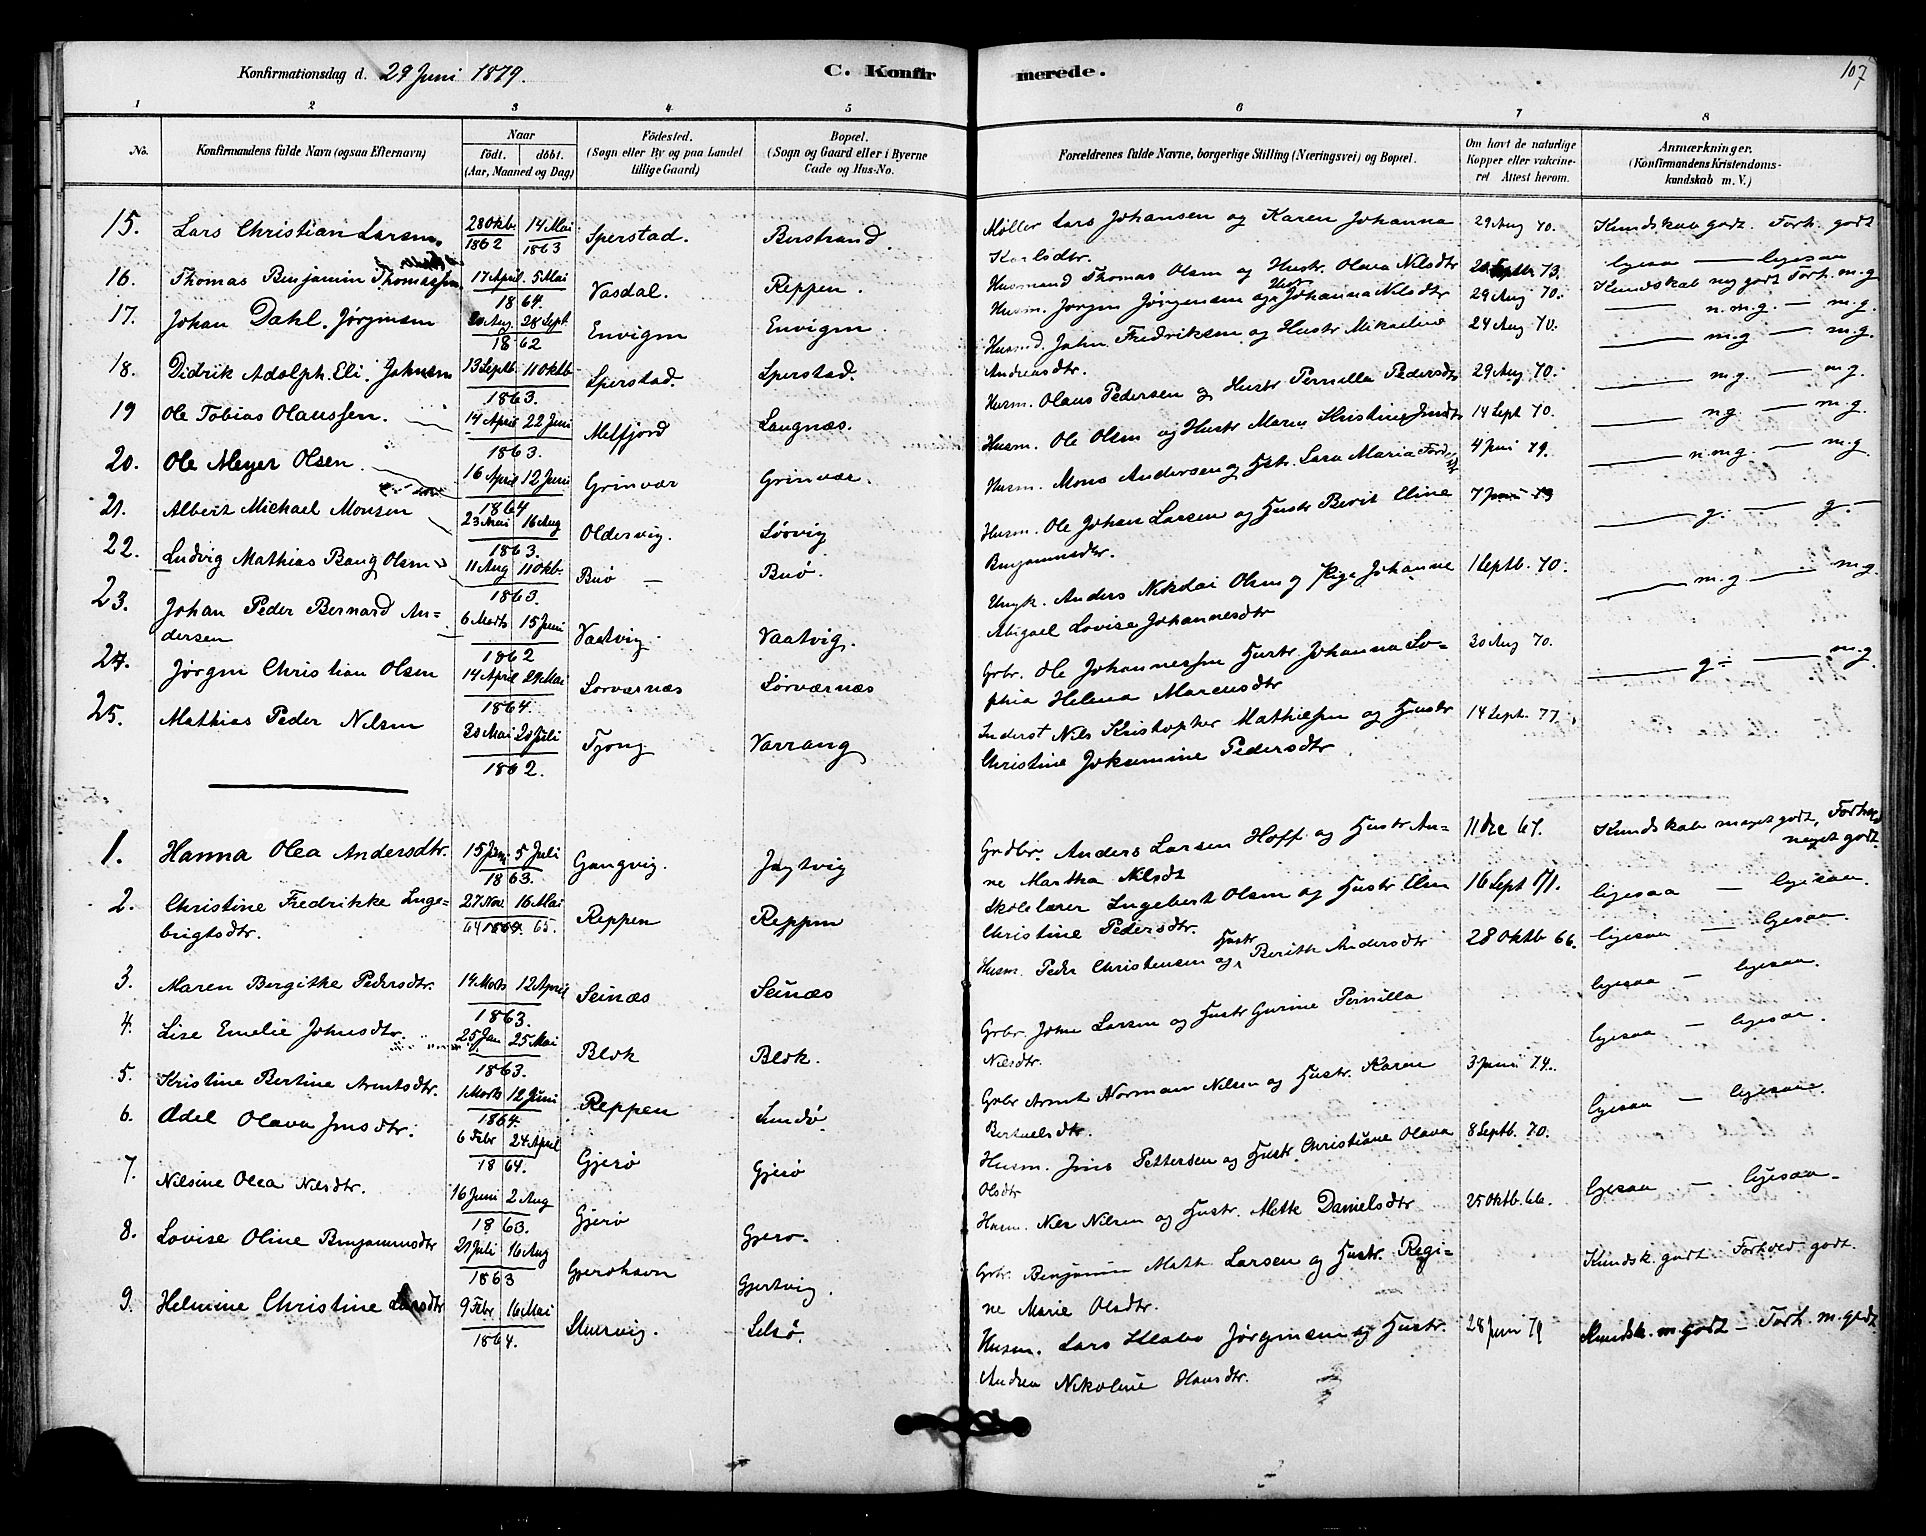 Konfirmationsdag d. 29 Juni 1879.
C. Konfirmerede.
107
1 2 3 4 5 6 7 8
No.
Konfirmandens fulde Navn (ogsaa Efternavn)
Naar
födt. döbt.
(Aar, Maaned og Dag)
Födested.
(Sogn eller By og paa Landet
tillige Gaard)
Bopæl.
(Sogn og Gaard eller i Byerne
Gade og Hus-No.
Forældrenes fulde Navne, borgerlige Stilling (Næringsvei) og Bopæl.
Om havt de naturlige
Kopper eller vakcine-
ret Attest herom.
Anmærkninger.
(Konfirmandens Kristendoms-
kundskab m. V.)
15. Lars Christian Larsen 28 Oktb. 14 Mai 1862 1863 Sperstad. Berstrand. Møller Lars Johansen og Karen Johanna
Karlsdtr. 29 Aug 70. Kundskab godt. Forh. godt
16. Thomas Benjamin Thomassen 17 April 5 Mai 1864. Vasdal. Reppen. Husmand Thomas Olsen og Hustr. Olava Nilsdtr 73. ligesaa — ligesaa
17. Johan Dahl. Jørgensen 20 Aug. 28 Sept 1862 Envigen Envigen. Husm. Jørgen Jørgensen og Hustr Johanna Nilsdtr 29 Aug 70. Kundskab neg godt Forh. m.g
18. Didrik Adolph. Eli. Johnsen 13 Septb 11 Oktb 1863. Sperstad. Sperstad. Husmd. John Fredriksen og Hustr Mikaeline
Andreasdtr. 24 Aug 70. — n.m.g. — m.g.
19 Ole Tobias Olaussen. 14 April 22 Juni 1863. Melfjord Langnæs. Husm. Olaus Pedersen og Hustr Pernilla Pedersdtr 29 Aug 70. — m.g — m.g.
20. Ole Meyer Olsen. 16 April 12 Juni 1864 Grinvær Grinvær. Husm. Ole Olsen og Hustr Maren Kristine Jensdtr 14 Sept 70. — m.g — m.g.
21. Albert Michael Monsen 23 Mai 16 Aug 1863. Oldervig. Sørvig Husm. Mons Andersen og Hstr. Lara Maria 4 Juni 79. — ng. — m.g.
22. Ludvig Mathias Bang Olsen 11 Aug 11 Oktb. 1863. Buö — Buö. Husm. Ole Johan Larsen og Hustr Berit Eline
Benjaminsdtr. 7 Juni 79 — n.m.g. — m.g
23. Johan Peder Bernard An-
dersen 6 Marts 15 Juni 1862 Vaatvig Vaatvig. Ungk. Anders Nikolai Olsen og Pige Johanne
Abigael Lovise Johannesdtr 1 Septb. 70. — g. — g. —
24. Jørgen Christian Olsen 14 April 24 Mai 1864. Sørværnæs Sørværnæs Grbr. Ole Johannessen Hustr Johanna So-
phia Helena Marcusdtr 30 Aug 70. — m.g — m.g.
25. Mathias Peder Nilsen 20 Juli 1862. Tjong Varrang Inderst Nils Kristopher Mathiesen og Hustr
Christine Joksumine Pedersdtr 14 Sept. 77. — g. — — m.g
1. Hanna Olea Andersdtr. 15 Jun. 5 Juli 1863. Gangvig. Jagtvig Grdbr. Anders Larsen Hoff og Hustr An-
ne Martha Nilsdt 11 Dec 67. Kundskab meget godt, Forhold
meget godt
2. Christine Fredrikke Inge-
brigtsdtr. 27 Nov 16 Mai 64 65. Reppen Reppen Skolelærer Ingebert Olsen og Hustr Elen
Christine Pedersdtr. 16 Sept 71. ligesaa — ligesaa.
3. Maren Bergitke Pedersdtr. 14 Marts 12 April 1863. Seinæs Seinæs Husm. Peder Christensen og Hustr Berith Andersdtr 28 Oktb 66. ligesaa — ligesaa.
4. Lise Emelie Johnsdtr. 25 Jan 25 Mai 1863. Blok Blok. Grbr John Larsen og Hustr Gurine Pernilla
Nilsdtr. ligesaa — ligesaa.
5. Kristine Bertine Arntsdtr. 1 Marts 12 Juni 1864. Reppen Sundö. Grbr Arnt Norman Nilsen og Hustr. Karen
Bertuelsdtr. 3 Juni 74. ligesaa — ligesaa.
6. Adel Olava Jensdtr. 6 Febr 24 April 1864. Gjerö Gjerö Husm. Jens Pettersen og Hustr Christiane Olava
Olsdtr 8 Septb. 70. ligesaa — ligesaa.
7. Nilsine Olea Nilsdtr. 16 Juni 2 Aug 1863. Gjerö Gjerö. Husm. Nils Nilsen og Hustr. Mette Danielsdtr 25 Oktb. 66. ligesaa — ligesaa.
8. Lovise Oline Benjaminsdtr 21 Juli 16 Aug 1863 Gjeröhavn Gjertvig. Grbr. Benjamin Math Larsen og Hustr. Regi-
ne Marie Olsdtr. Kundsk. godt Forhold. godt.
9. Helmine Christine Larsdtr 9 Febr 16 Mai 1864. Selsö. Husm. Lars Jørgensen og Hustr.
Andrea Nikoline Hansdtr. 28 Juni 79 Kundsk. m. godt — Forh. m. godt